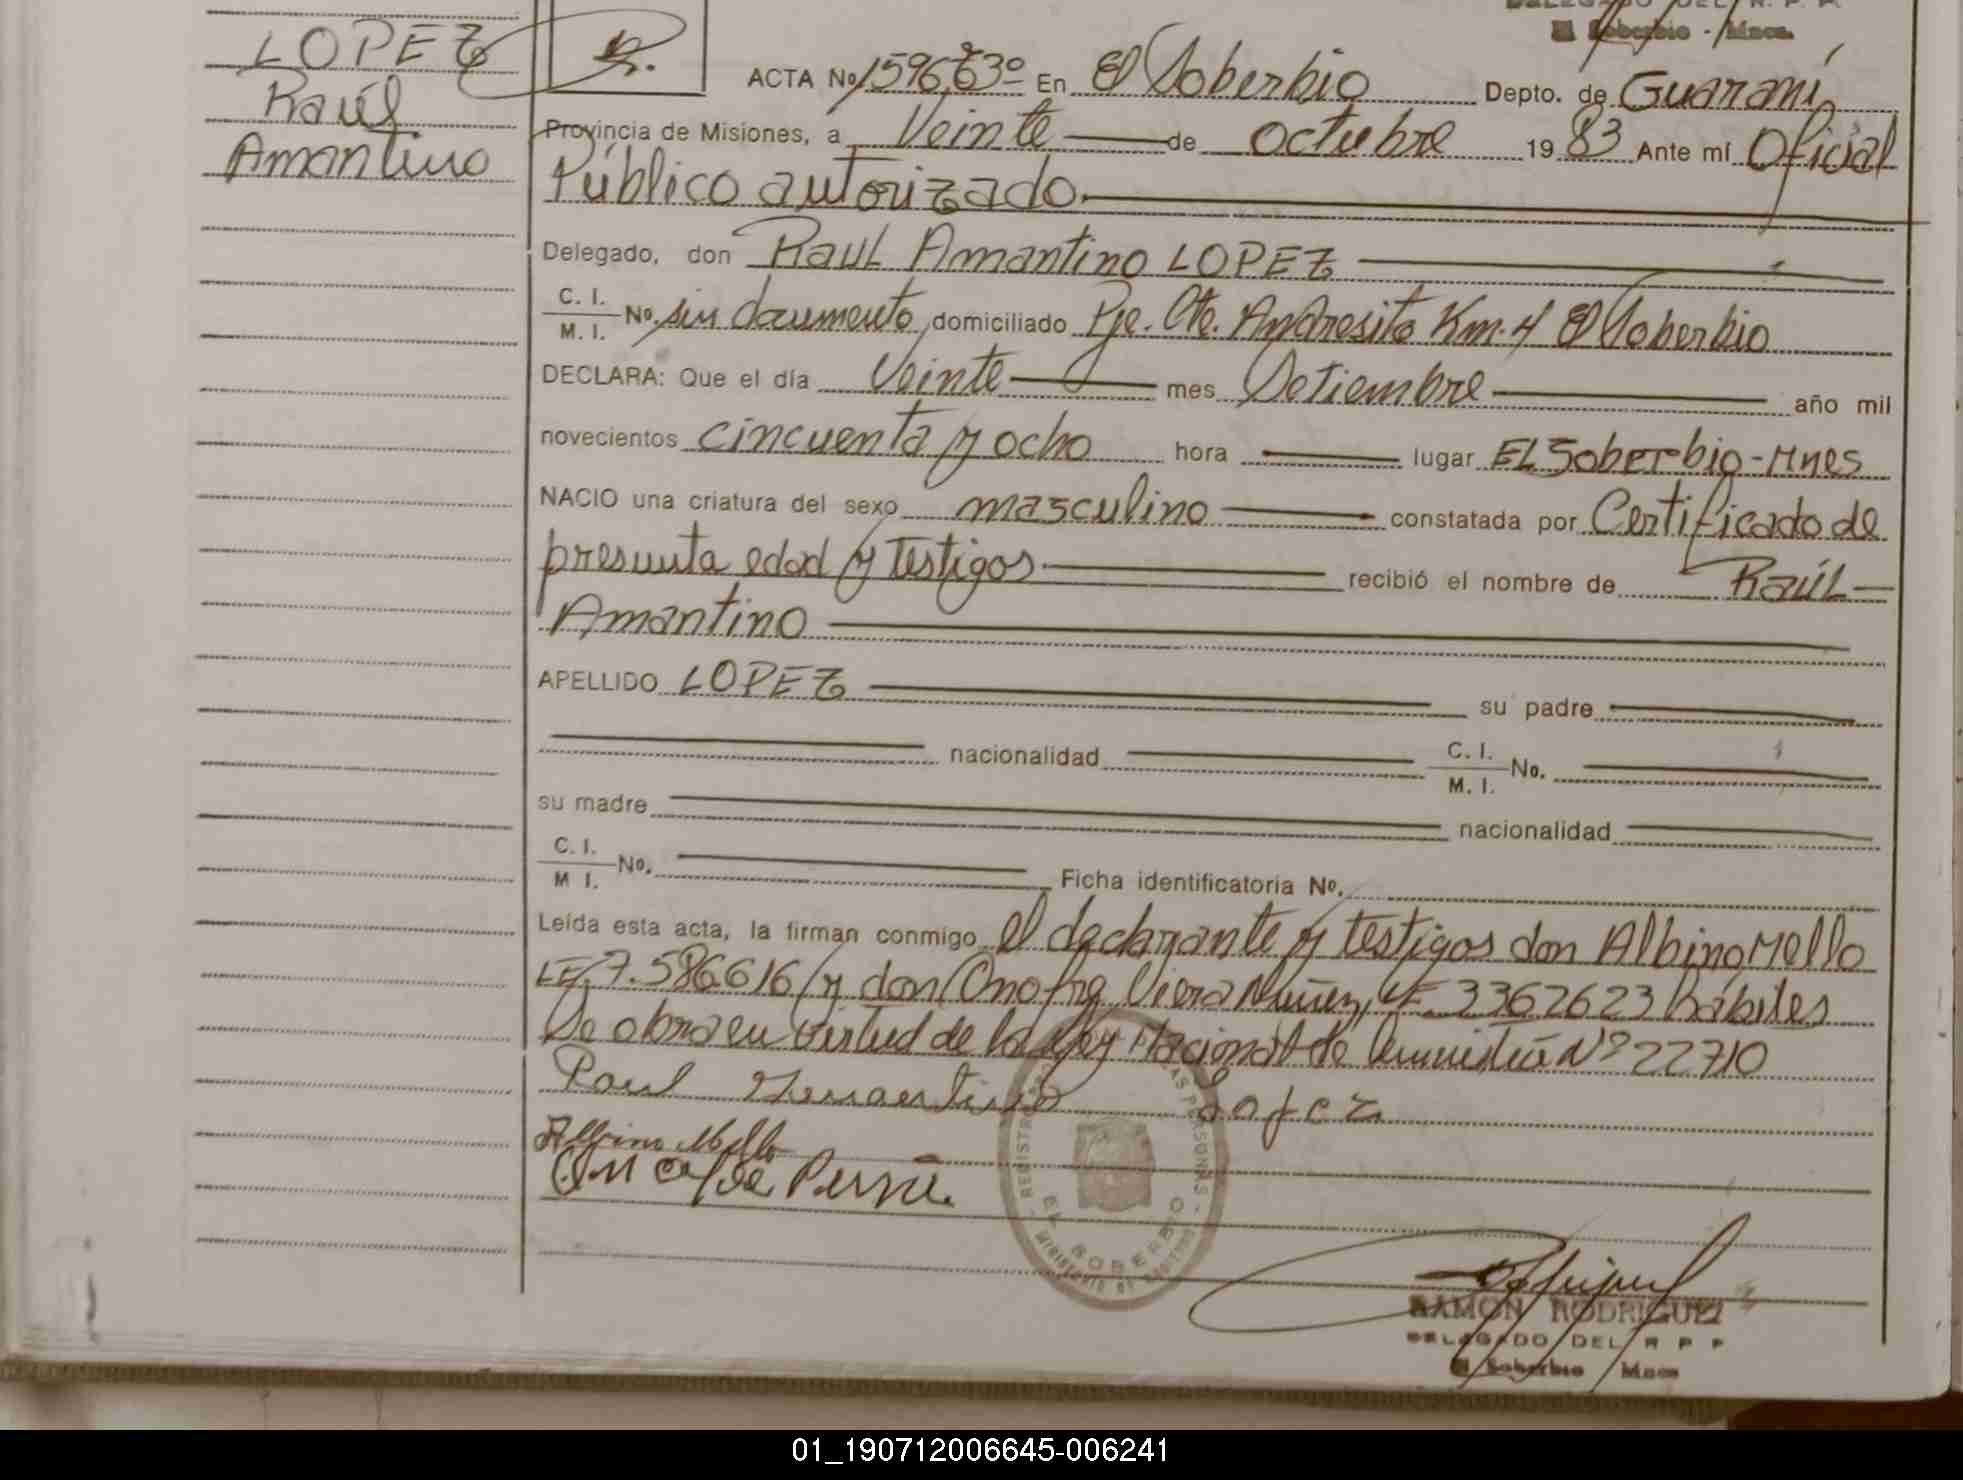 DELEGADO DEL R. P. P.
El Soberbio - Mnes.
LOPEZ
Raúl
Amantino
R.
ACTA No 1596, 63º En El Soberbio Depto. de Guaraní,
Provincia de Misiones, a Veinte de octubre 19 83 Ante mí Oficial
Público autorizado.
Delegado, don RAUL Amantino LOPEZ
C. I.
M. I.
No. sin documento, domiciliado Pje. Cte. Andresito Km. 4 El Soberbio
DECLARA: Que el día Veinte mes Setiembre año mil
novecientos cincuenta y ocho hora lugar EL Soberbio - Mnes
NACIO una criatura del sexo masculino constatada por Certificado de
presunta edad y testigos recibió el nombre de RAÚL
Amantino
APELLIDO LOPEZ su padre
nacionalidad C. I.
M. I. No.
su madre nacionalidad
C. I.
M I. No. Ficha identificatoria No.
Leída esta acta, la firman conmigo el declarante y testigos don Albino Mello
LE. 7.586616 y don Viera Nuñez, LE 3362623 hábiles
Se obra en virtud de la Ley Nacional de Amnistía Nº 22710
Raul Amantino Lopez
Albino Mello
REGISTRO PERSONAS
EL SOBERBIO
MINISTERIO DE GOBIERNO
RAMON RODRIGUEZ
DELEGADO DEL R P P
El Soberbio Mnes
01_190712006645-006241